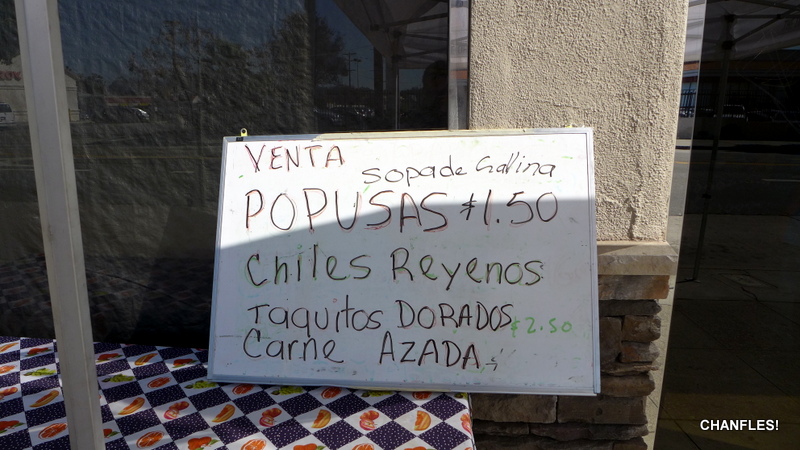 VENTA
Sopa de Gallina
POPUSAS $1.50
Chiles Reyenos
Taquitos DORADOS $2.50
Carne AZADA
CHANFLES!